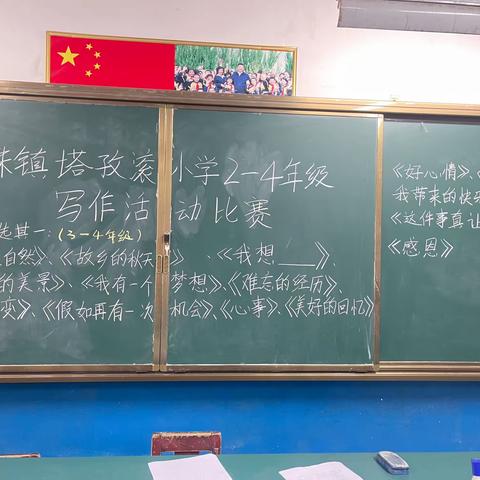 镇塔孜窝小学2-4年级
写作活动比赛
选其一:(3-4年级)
自然》、《故乡的秋天》、《我想____》、
的美景》、《我有一个梦想》、《难忘的经历》、
变》、《假如再有一次机会》、《心事》、《美好的回忆》
《好心情》、《
我带来的快乐
《这件事真让
《感恩》